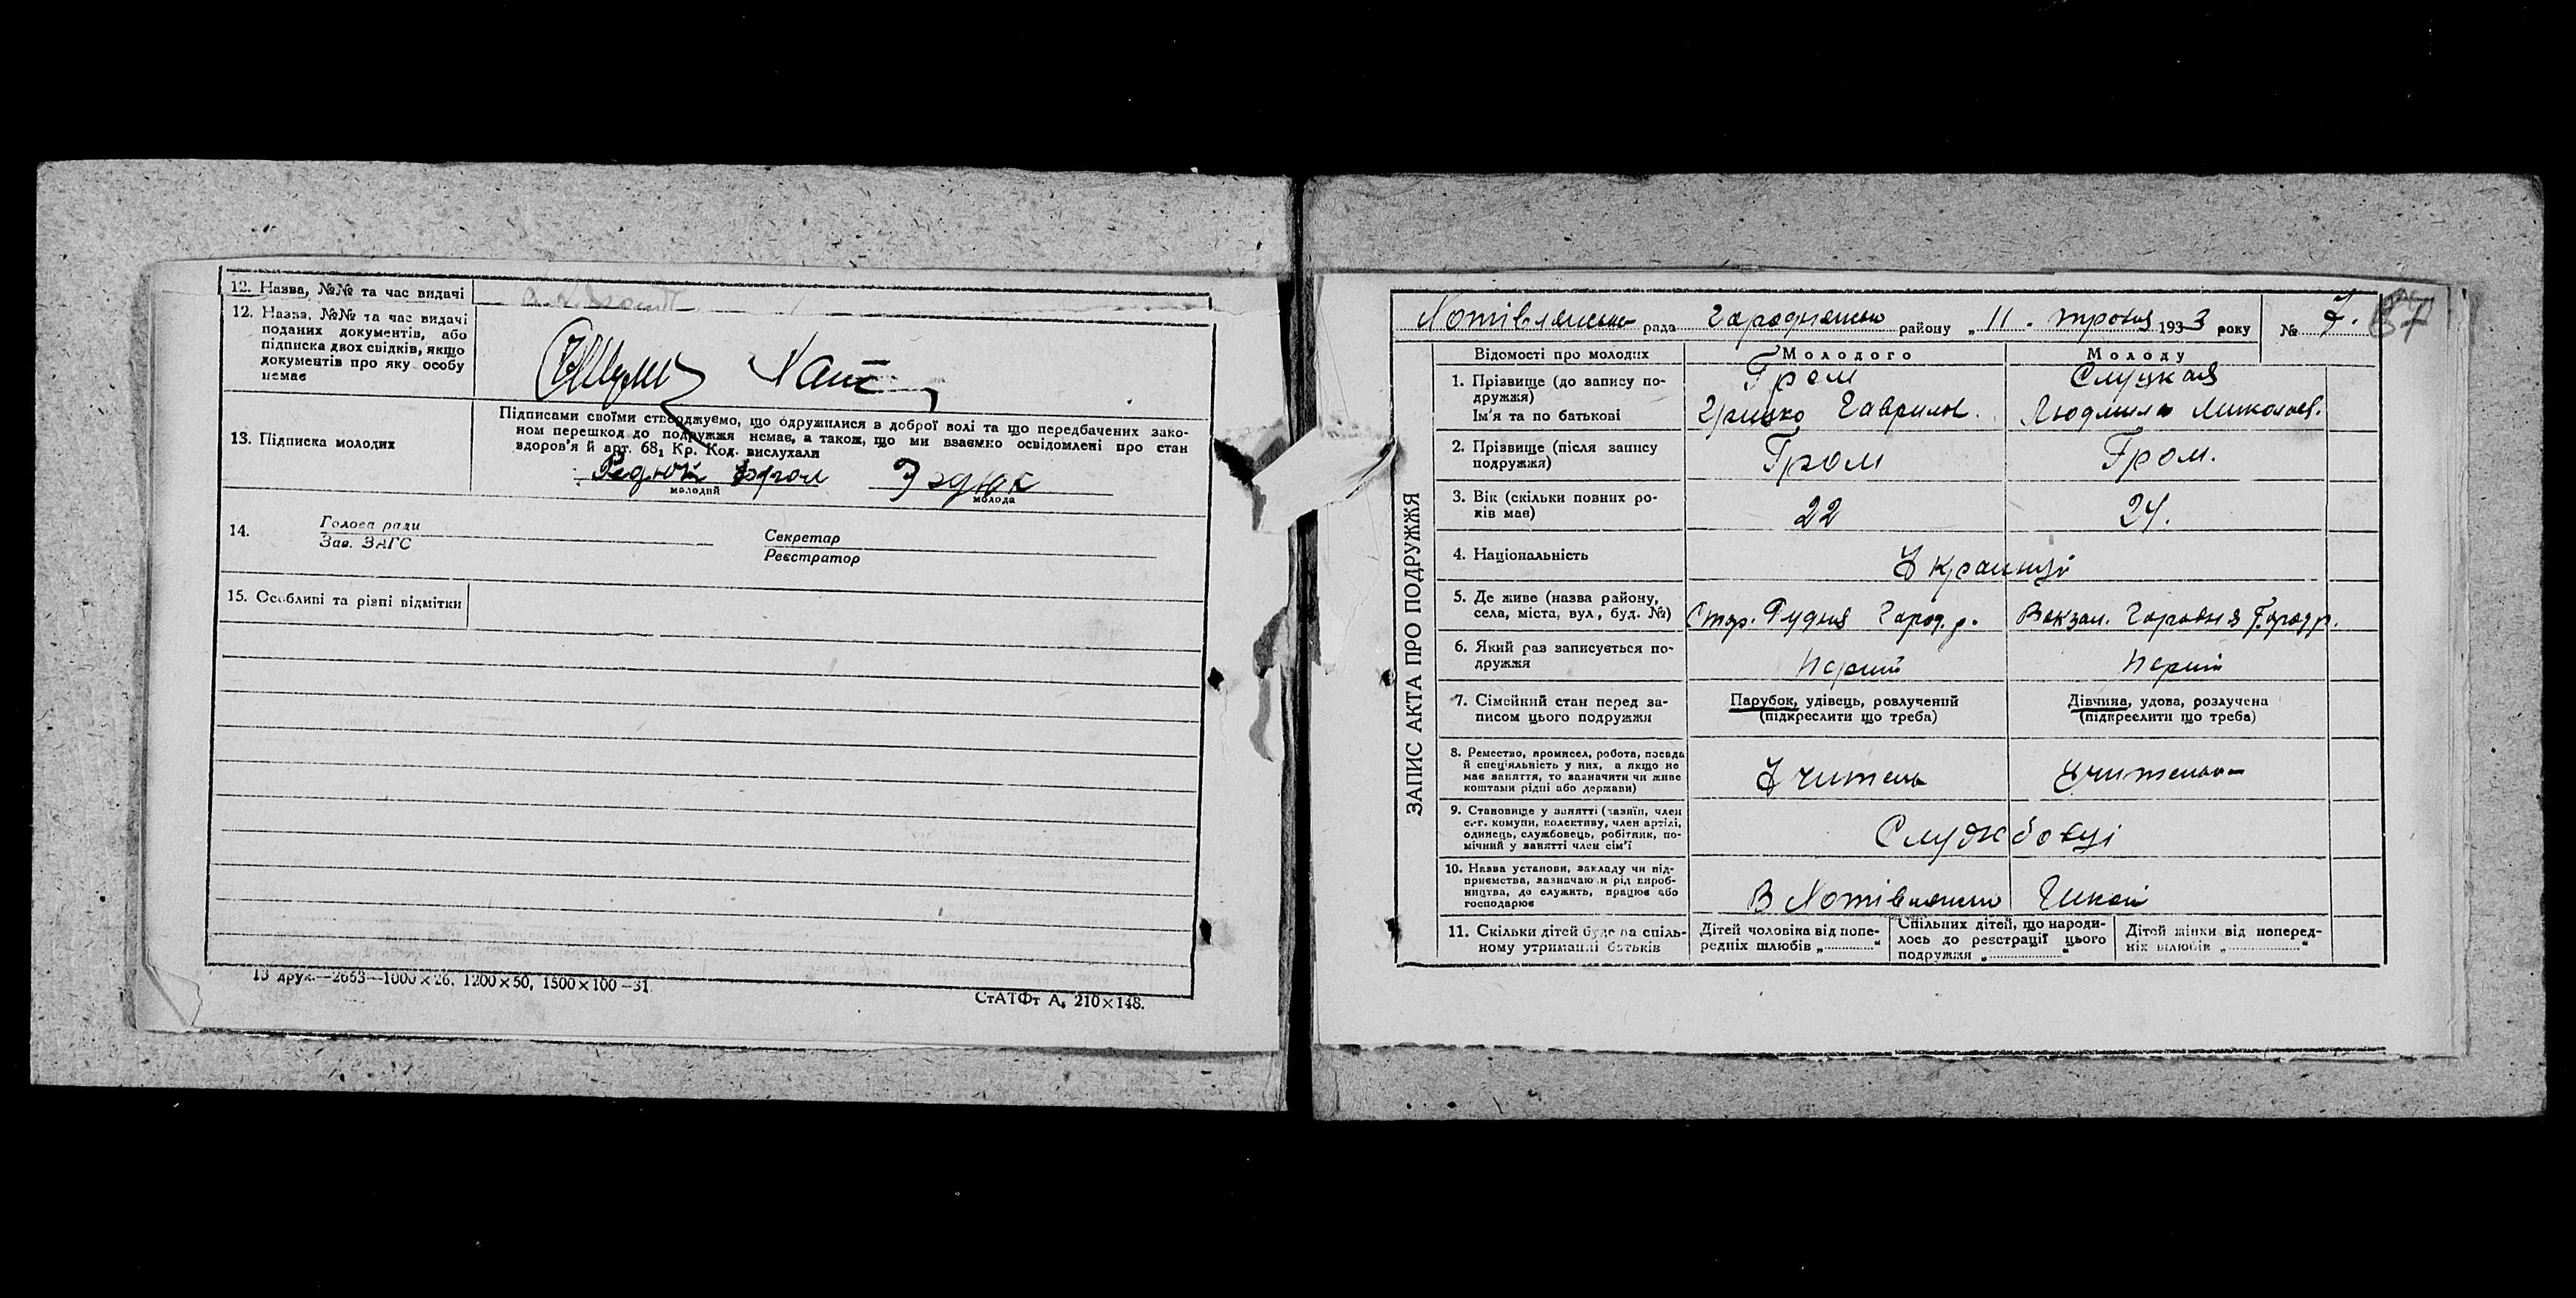 12. Назва, №№ та час видачі
12. Назва, №№ та час видачі
поданих документів, або
підписка двох свідків, якщо
документів про яку особу
немає
13. Підписка молодих
Підписами своїми стверджуємо, що одружилися в доброї волі та що передбачених зако-
ном перешкод до подружжя немає, а також, що ми взаємко освідомлені про стан
здоров'я й арт. 68, Кр. Код. вислухали
Редюк
молодий
Рэдюк
молода
14.
Голова ради
Зав. ЗАГС
Секретар
Реєстратор
15. Особливі та різні відмітки
13 друк.—2653—1000×26, 1200×50, 1500×100—31
СтАТФт А, 210×148.
Хотівлянська рада Городнянськ району „11. травня 1933 року № 7. 87
ЗАПИС АКТА ПРО ПОДРУЖЖЯ
Відомості про молодих
Молодого
Молоду
1. Прізвище (до запису по-
дружжя)
Ім'я та по батькові
Гром
Грицко Гаврилов.
Слуцкая
Людмила Миколаєв.
2. Прізвище (після запису
подружжя)
Гром
Гром.
3. Вік (скільки повних ро-
ків має)
22
24.
4. Національність
Українці
5. Де живе (назва району,
села, міста, вул., буд. №)
Стар. Рудня Город. р.
Вокзал. Городня Город р.
6. Який раз записується по-
дружжя
Перший
Перший
7. Сімейний стан перед за-
писом цього подружжя
Парубок, удівець, розлучений
(підкреслити що треба)
Дівчина, удова, розлучена
(підкреслити що треба)
8. Ремество, промисел, робота, посада
й спеціяльність у них, а якщо не
має заняття, то зазначити чи живе
коштами рідні або держави)
Учитель
Учителька
9. Становище у занятті (хазяїн, член
с.-г. комуни, колективу, член артілі,
одинець, службовець, робітник, по-
мічний у занятті член сім'ї
Службовці
10. Назва установи, закладу чи під-
приємства, зазначаючи рід вироб-
ництва, де служить, працює або
господарює
В Хотівлянськ
11. Скільки дітей буде на спіль-
ному утриманні батьків
Дітей чоловіка від попе-
редніх шлюбів „............“
Спільних дітей, що народи-
лось до реєстрації цього
подружжя „............“
Дітей жінки від поперед-
ніх шлюбів „............“